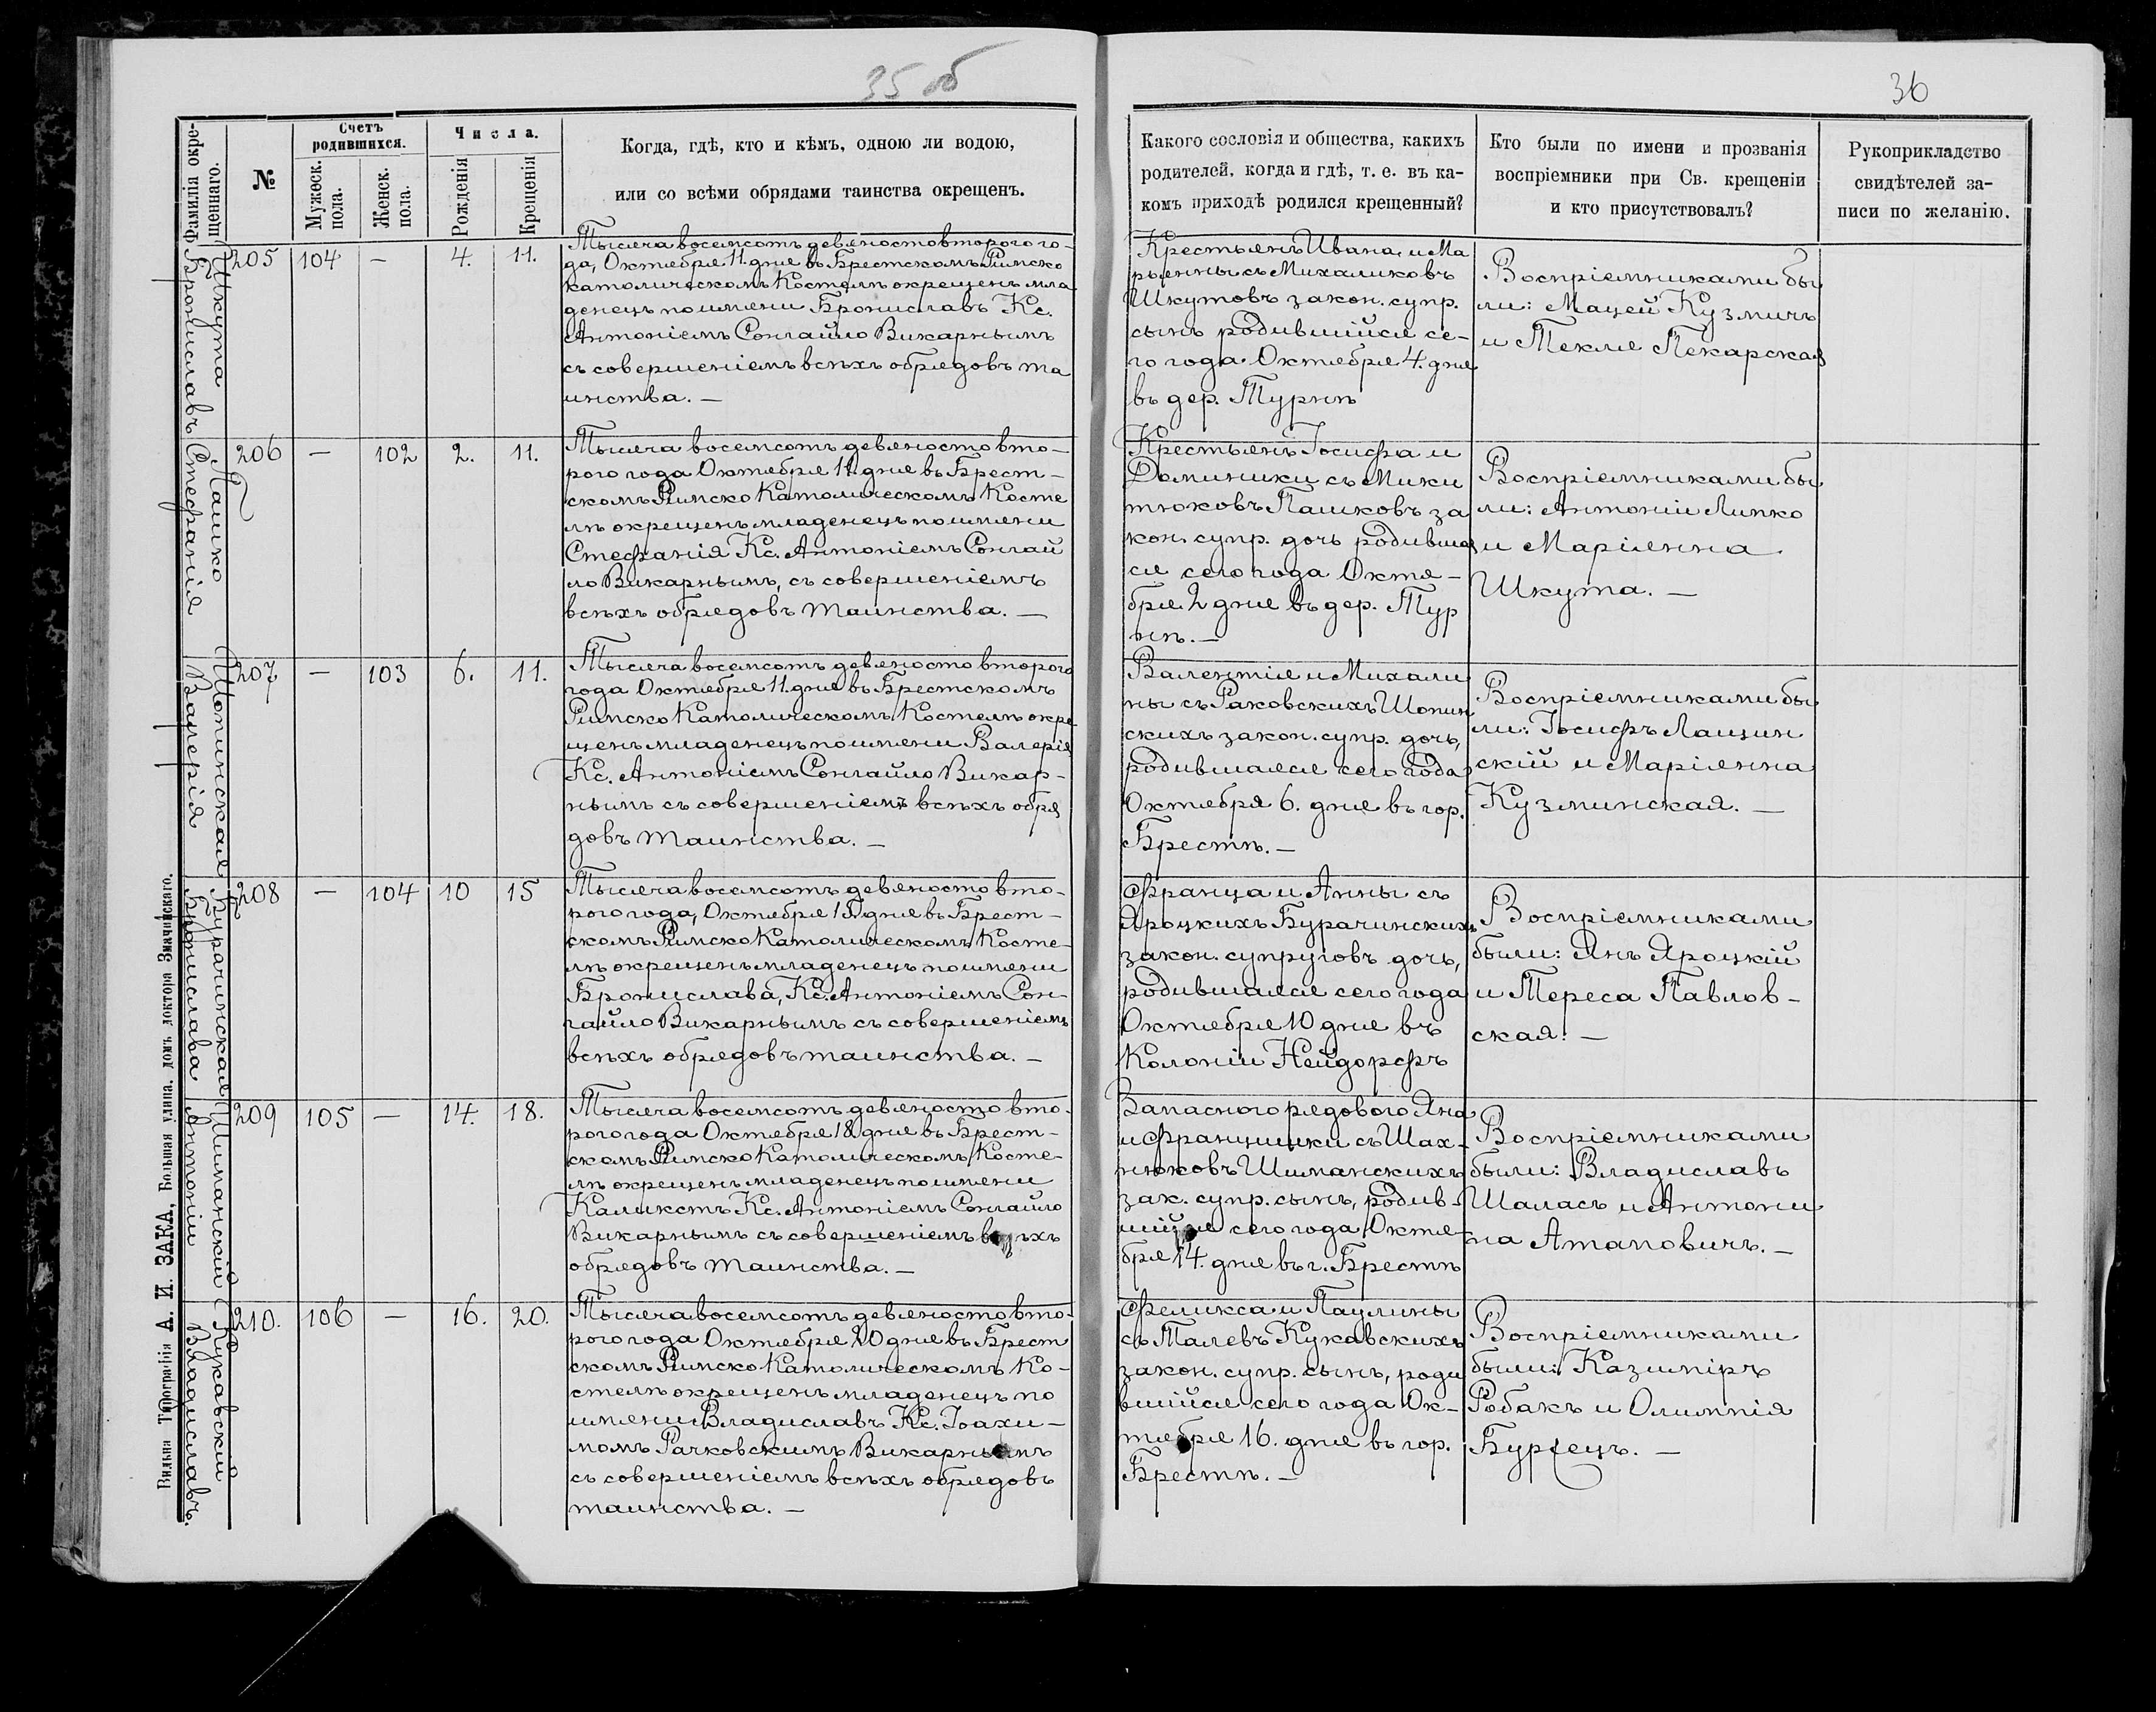 35 об
36
Фамилія окре-
щеннаго.
№
Счетъ
родившихся.
Мужеск.
пола.
Женск.
пола.
Числа.
Рожденія
Крещенія
Когда, гдѣ, кто и кѣмъ, одною ли водою,
или со всѣми обрядами таинства окрещенъ.
Какого сословія и общества, какихъ
родителей, когда и гдѣ, т. е. въ ка-
комъ приходѣ родился крещенный?
Кто были по имени и прозванія
воспріемники при Св. крещеніи
и кто присутствовалъ?
Рукоприкладство
свидѣтелей за-
писи по желанію.
Шкута
Брониславъ
205 104 — 4. 11.
Тысяча восемсотъ девяносто второго го-
да, Октября 11. дня въ Брестскомъ Римско
Католическомъ Костелѣ окрещенъ мла
денецъ по имени Брониславъ Кс.
Антоніемъ Сонгайло Викарнымъ
съ совершеніемъ всѣхъ обрядовъ та
инства. —
Крестьянъ Ивана и Ма
рьянны съ Михалюковъ
Шкутовъ закон. супр.
сынъ родившійся се-
го года Октября 4. дня
въ дер. Турнѣ
Воспріемниками бы
ли: Мацей Кузмичъ
и Текля Пекарская
Пашко
Стефанія
206 — 102 2. 11.
Тысяча восемсотъ девяносто вто-
рого года Октября 11 дня въ Брест-
скомъ Римско Католическомъ Косте
лѣ окрещенъ младенецъ по имени
Стефанія Кс. Антоніемъ Сонгай
ло Викарнымъ, съ совершеніемъ
всѣхъ обрядовъ Таинства. —
Крестьянъ Іосифа и
Доминики съ Мики
тюковъ Пашковъ за
кон. супр. дочь родивша
ся сего года Октя-
бря 2 дня въ дер. Тур
нѣ. —
Воспріемниками бы
ли: Антоній Липко
и Маріянна
Шкута. —
Шопинская
Валерія
207 — 103 6. 11.
Тысяча восемсотъ девяносто второго
года Октября 11. дня въ Брестскомъ
Римско Католическомъ Костелѣ окре
щенъ младенецъ по имени Валерія
Кс. Антоніемъ Сонгайло Викар-
нымъ съ совершеніемъ всѣхъ обря
довъ Таинства. —
Валентія и Михали
ны съ Раковскихъ Шопин
скихъ закон. супр. дочь,
родившаяся сего года
Октября 6. дня въ гор.
Брестѣ. —
Воспріемниками бы
ли: Іосифъ Лащин
скій и Маріянна
Кузминская. —
Бурачинская
Бронислава
208 — 104 10 15
Тысяча восемсотъ девяносто вто-
рого года, Октября 15 дня въ Брест-
скомъ Римско Католическомъ Косте-
лѣ окрещенъ младенецъ по имени
Бронислава, Кс. Антоніемъ Сон-
гайло Викарнымъ съ совершеніемъ
всѣхъ обрядовъ таинства. —
Франца и Анны съ
Яроцкихъ Бурачинскихъ
закон. супруговъ дочь,
родившаяся сего года
Октября 10 дня въ
Колоніи Нейдорфъ
Воспріемниками
были: Янъ Яроцкій
и Тереса Павлов-
ская. —
Шиманскій
Антоній
209 105 — 14. 18.
Тысяча восемсотъ девяносто вто-
рого года Октября 18 дня въ Брест-
скомъ Римско Католическомъ Косте-
лѣ окрещенъ младенецъ по имени
Каликстъ Кс. Антоніемъ Сонгайло
Викарнымъ съ совершеніемъ всѣхъ
обрядовъ Таинства. —
Запасного рядового Яна
и Францишки съ Шах-
нюковъ Шиманскихъ
зак. супр. сынъ, родив-
шійся сего года Октя-
бря 14. дня въ г. Брестѣ
Воспріемниками
были: Владиславъ
Шаласъ и Антони
на Атаповичъ. —
Кукавскій
Владиславъ.
210. 106 — 16. 20.
Тысяча восемсотъ девяносто вто-
рого года Октября 20 дня въ Брест
скомъ Римско Католическомъ Ко-
стелѣ окрещенъ младенецъ по
имени Владиславъ Кс. Іоахи-
момъ Рачковскимъ Викарнымъ
съ совершеніемъ всѣхъ обрядовъ
таинства. —
Феликса и Паулины
съ Талевъ Кукавскихъ
закон. супр. сынъ, роди
вшійся сего года Ок-
тября 16. дня въ гор.
Брестѣ. —
Воспріемниками
были: Казимиръ
Робакъ и Олимпія
Бурсецъ. —
Вильна Типографія А. И. ЗАКА, Большая улица, домъ доктора Змачинскаго.